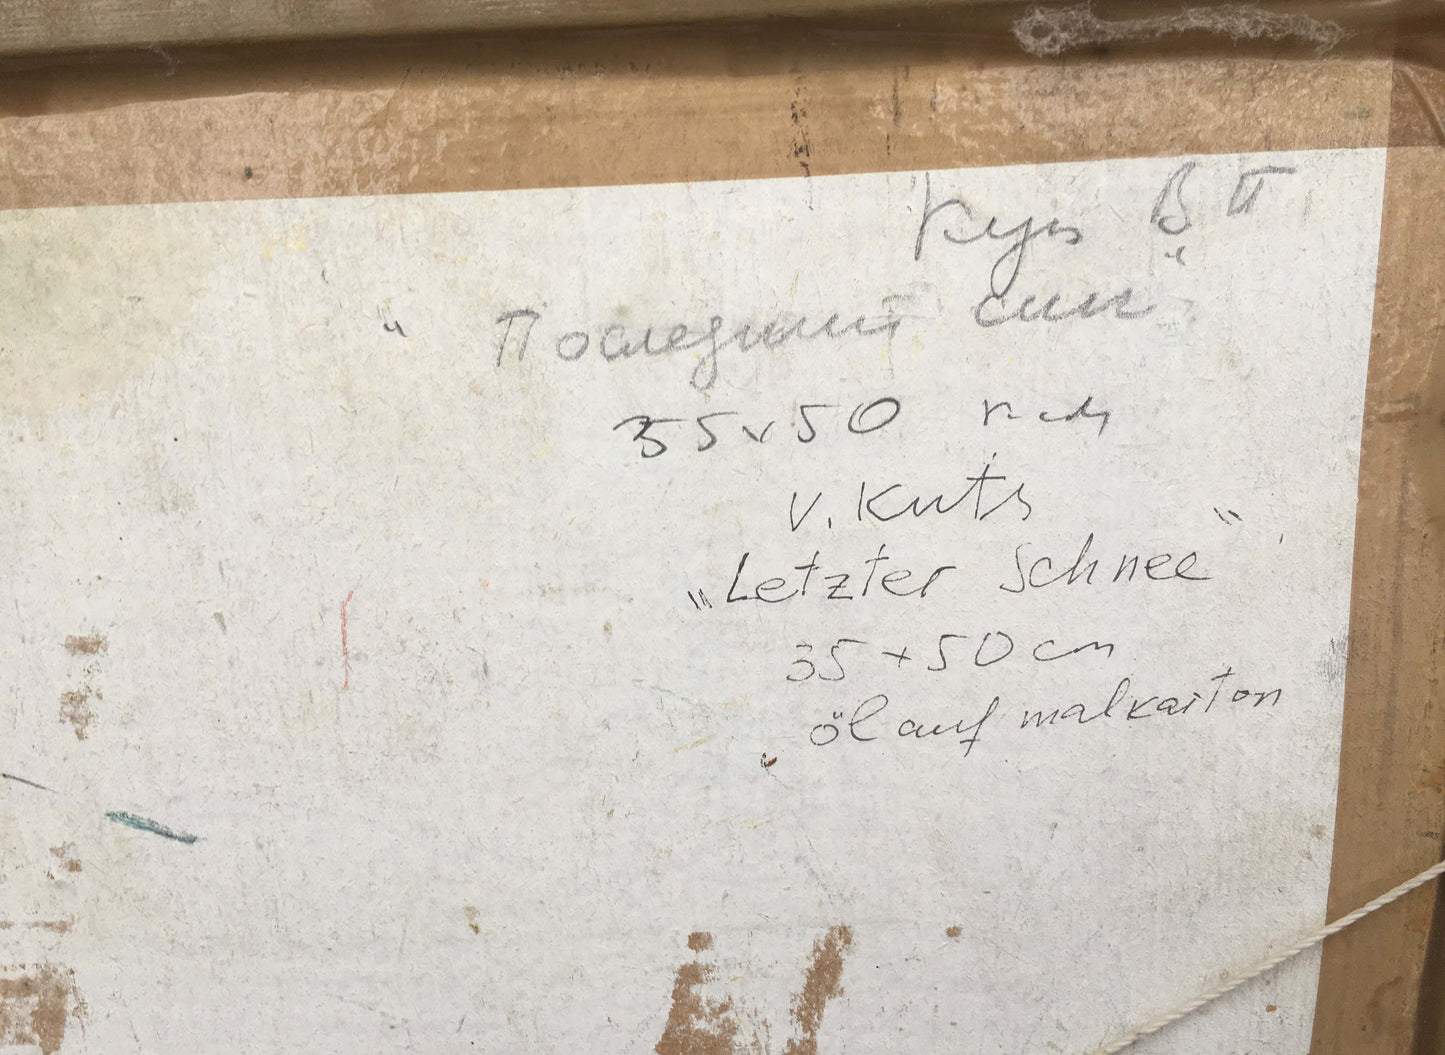 Куць В П
"Последний снег"
35x50 к. м
V. Kuts
„Letzter Schnee"
35 x 50 cm
öl auf malkarton